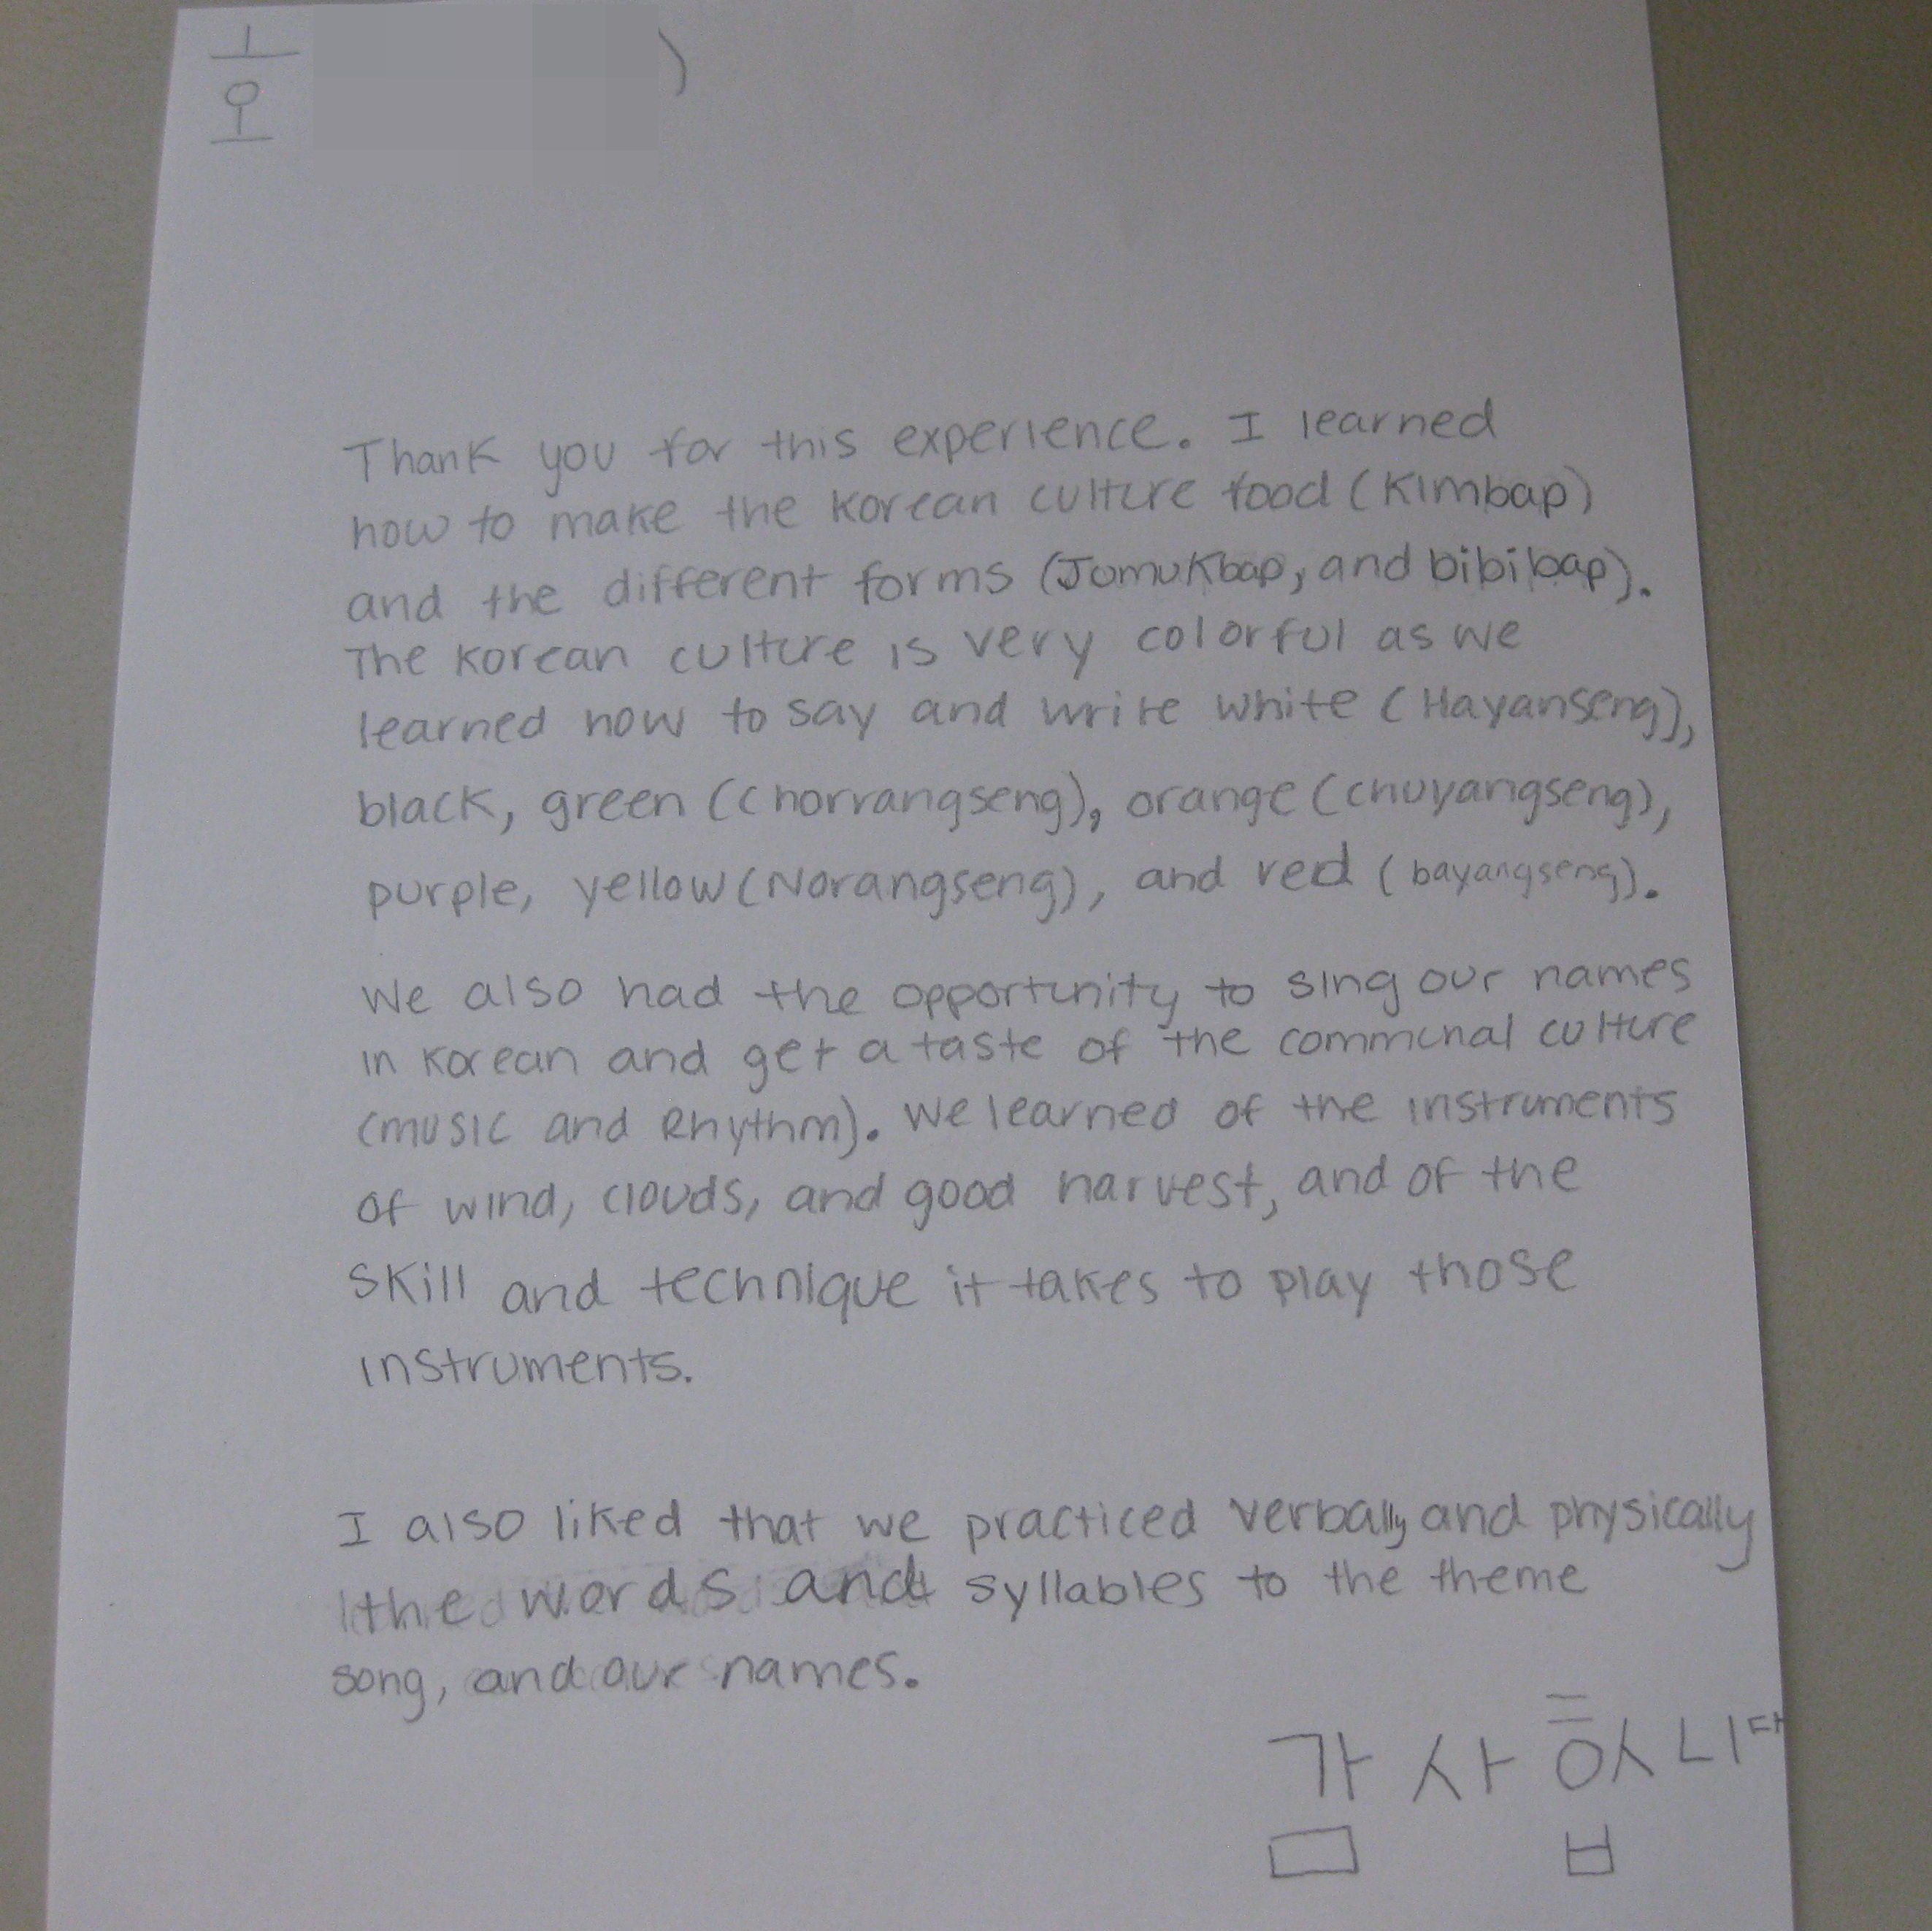 Thank you for this experience. I learned
how to make the Korean culture food (Kimbap)
and the different forms (Jumukbap, and bibibap).
The Korean culture is very colorful as we
learned how to say and write white (Hayanseng),
black, green (Chorrangseng), orange (chuyangseng),
purple, yellow (Norangseng), and red (bayangseng).
We also had the opportunity to sing our names
in Korean and get a taste of the communal culture
(music and Rhythm). We learned of the instruments
of wind, clouds, and good harvest, and of the
skill and technique it takes to play those
instruments.
I also liked that we practiced verbally and physically
the words and syllables to the theme
song, and our names.
감사합니다